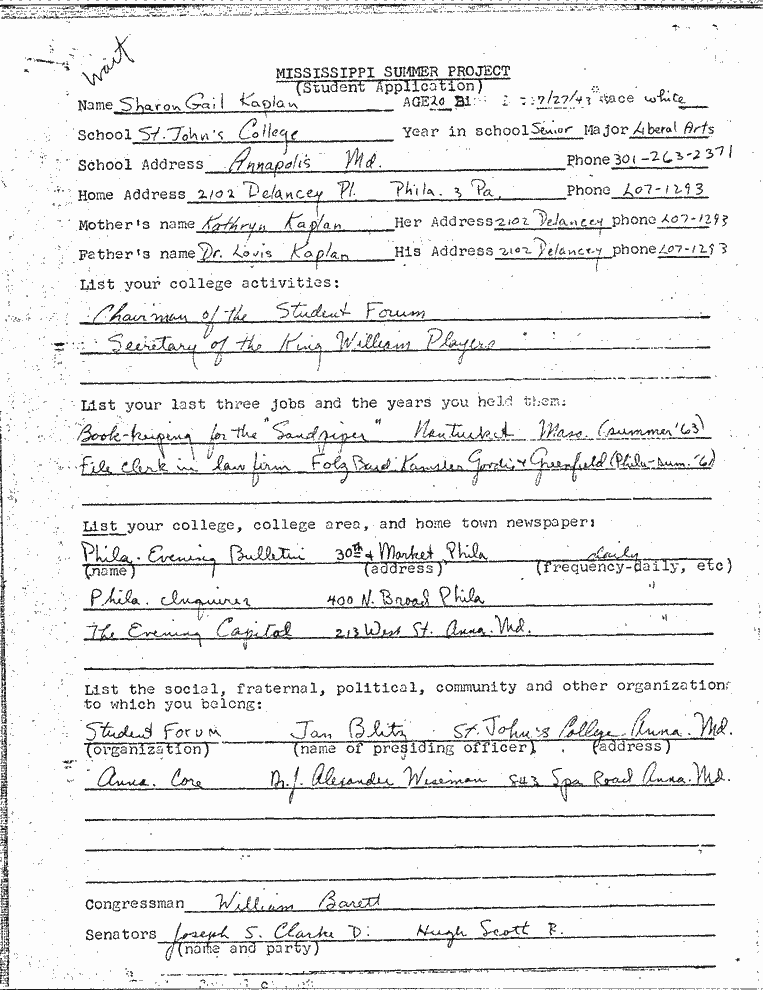 wait
MISSISSIPPI SUMMER PROJECT
(Student Application)
Name Sharon Gail Kaplan AGE 20 7/27/43 Race white
School St. John's College Year in school Senior Major Liberal Arts
School Address Annapolis Md. Phone 301-263-2371
Home Address 2102 Delancey Pl. Phila. 3 Pa. Phone LO7-1293
Mother's name Kathryn Kaplan Her Address 2102 Delancey phone LO7-1293
Father's name Dr. Louis Kaplan His Address 2102 Delancey phone LO7-1293
List your college activities:
Chairman of the Student Forum
Secretary of the King William Players
List your last three jobs and the years you held them:
Book-keeping for the "Sandpiper" Nantucket Mass. (summer '63)
File clerk in law firm Folz Bard Kamsler Goodis & Greenfield (Phila-sum.
List your college, college area, and home town newspaper:
Phila. Evening Bulletin 30th & Market Phila daily
(name) (address) (frequency-daily, etc)
Phila. Inquirer 400 N. Broad Phila "
The Evening Capital 213 West St. Anna. Md. "
List the social, fraternal, political, community and other organizations
to which you belong:
Student Forum Jan Blitz St. John's College Anna. Md.
(organization) (name of presiding officer) (address)
Anna. Core Dr. J. Alexander Wiseman 843 Spa Road Anna. Md.
Congressman William Barett
Senators Joseph S. Clarke D. Hugh Scott R.
(name and party)